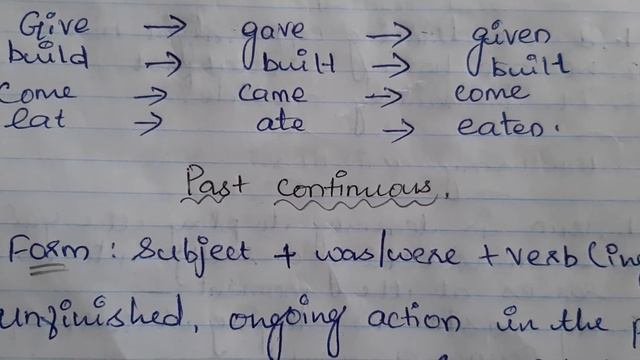 Give → gave → given
build → built → built
Come → came → come
eat → ate → eaten.
Past continuous.
Form : Subject + was/were + verb (ing
unfinished, ongoing action in the p